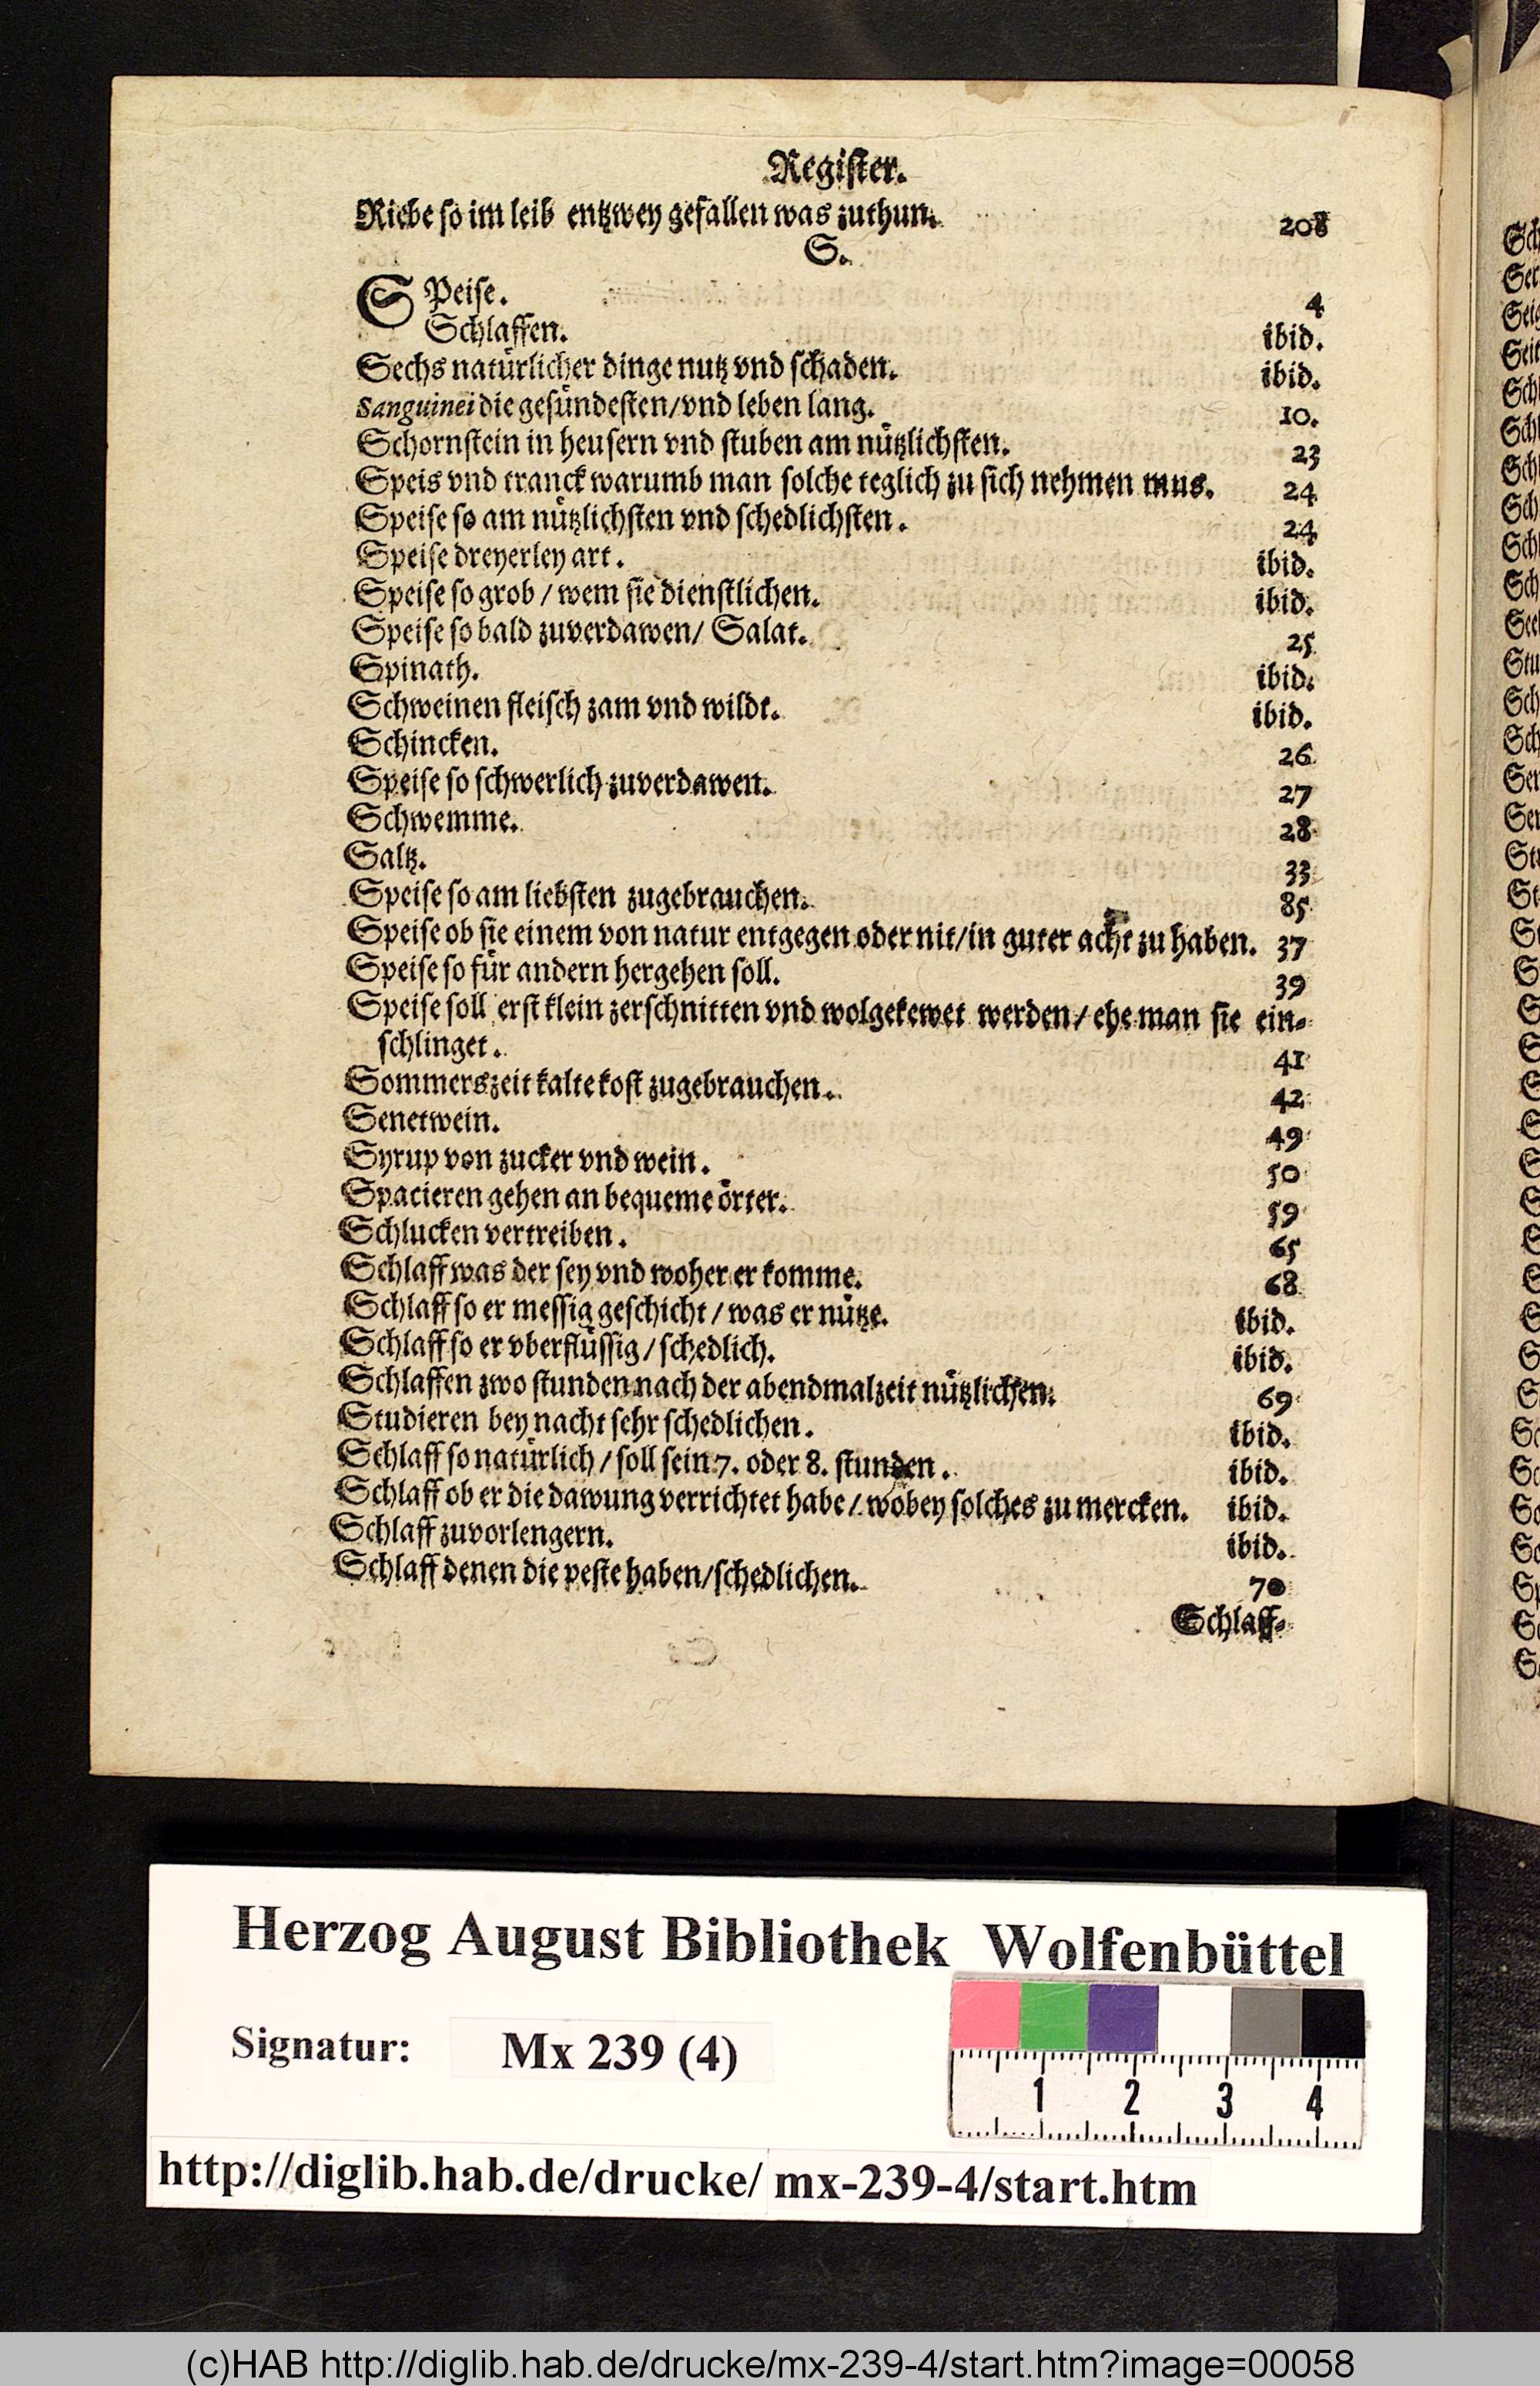 Register.
Riebe so im leib entzwey gefallen was zuthun. 208
S.
SPeise. 4
Schlaffen. ibid.
Sechs natürlicher dinge nutz vnd schaden. ibid.
Sanguinei die gesündesten/vnd leben lang. 10.
Schornstein in heusern vnd stuben am nützlichsten. 23
Speis vnd tranck warumb man solche teglich zu sich nehmen mus. 24
Speise so am nützlichsten vnd schedlichsten. 24
Speise dreyerley art. ibid.
Speise so grob / wem sie dienstlichen. ibid.
Speise so bald zuverdawen/ Salat. 25
Spinath. ibid.
Schweinen fleisch zam vnd wildt. ibid.
Schincken. 26
Speise so schwerlich zuverdawen. 27
Schwemme. 28
Saltz. 33
Speise so am liebsten zugebrauchen. 85
Speise ob sie einem von natur entgegen oder nit/in guter acht zu haben. 37
Speise so für andern hergehen soll. 39
Speise soll erst klein zerschnitten vnd wolgekewet werden/ ehe man sie ein-
schlinget. 41
Sommerszeit kalte kost zugebrauchen. 42
Senetwein. 49
Syrup von zucker vnd wein. 50
Spacieren gehen an bequeme örter. 59
Schlucken vertreiben. 65
Schlaff was der sey vnd woher er komme. 68
Schlaff so er messig geschicht / was er nütze. ibid.
Schlaff so er vberflüssig / schedlich. ibid.
Schlaffen zwo stunden nach der abendmalzeit nützlichen. 69
Studieren bey nacht sehr schedlichen. ibid.
Schlaff so natürlich / soll sein 7. oder 8. stunden. ibid.
Schlaff ob er die dawung verrichtet habe / wobey solches zu mercken. ibid.
Schlaff zuvorlengern. ibid.
Schlaff denen die peste haben/schedlichen. 70
Schlaff-
Herzog August Bibliothek Wolfenbüttel
Signatur: Mx 239 (4)
1 2 3 4
http://diglib.hab.de/drucke/ mx-239-4/start.htm
(c)HAB http://diglib.hab.de/drucke/mx-239-4/start.htm?image=00058